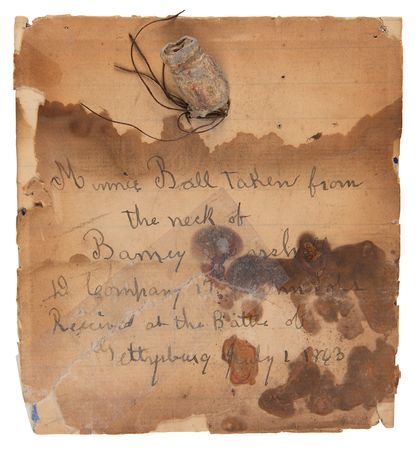 Minnie Ball taken from
the neck of
Barney
D Company 17
Recived at the Battle of
Gettysburg July 1 1863